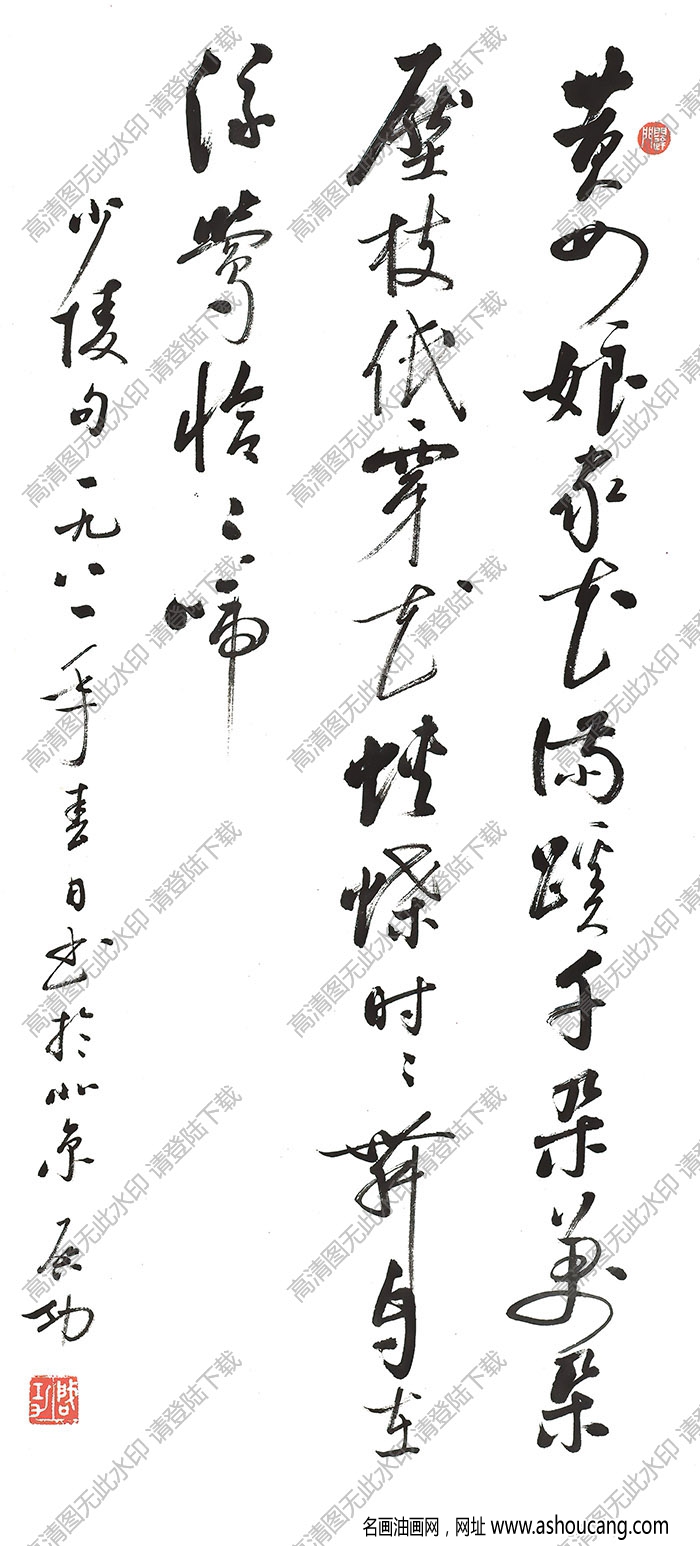 黄四娘家花滿蹊千朵萬朵
壓枝低穿花蛺蝶时〻舞自在
鶯恰〻啼
少陵句一九八一年春日书於北京 启功
启功
高清图无此水印 请登陆下载
名画油画网，网址 www.ashoucang.com